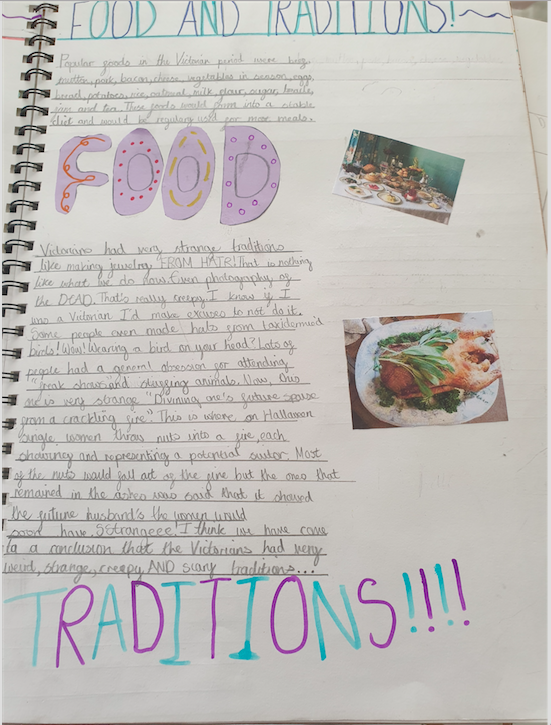 FOOD AND TRADITIONS!
Popular foods in the Victorian period were beef,
mutton, pork, bacon, cheese, vegetables in season, eggs,
bread, potatoes, rice, oatmeal, milk, flour, sugar, treacle,
jam and tea. These foods would form into a stable
diet and would be regulary used for most meals.
FOOD
Victorians had very strange traditions
like making jewelry FROM HAIR! That is nothing
like what we do now. Even photography of
the DEAD. That's really creepy. I know if I
was a Victorian I'd make excuses to not do it.
Some people even made hats from taxidermied
birds! Wow! Wearing a bird on your head? Lots of
people had a general obsession for attending
"freak shows" and stuffing animals. Now, this
one is very strange "Divining one's future spouse
from a crackling fire." This is where on Halloween
single women throw nuts into a fire, each
showing and representing a potential suitor. Most
of the nuts would fall out of the fire but the ones that
remained in the ashes was said that it showed
the future husband's the women would
soon have. SStrangeee! I think we have come
to a conclusion that the Victorians had very
weird, strange, creepy AND scary traditions...
TRADITIONS!!!!